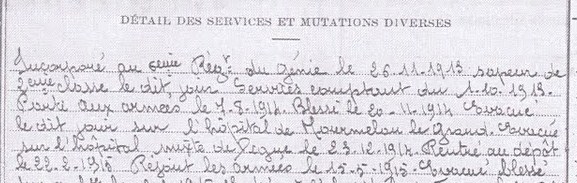 DÉTAIL DES SERVICES ET MUTATIONS DIVERSES
Incorporé au 6eme Régt du Génie le 26.11.1913 sapeur de
2eme classe le dit jour Services comptant du 1.10.1913.
Parti aux armées le 7.8.1914. Blessé le 20.11.1914 Evacué
le dit jour sur l'hôpital de Mourmelon le Grand. Evacué
sur l'hôpital mixte de le 23.12.1914. Rentré au dépôt
le 22.2.1915 Rejoint les armées le 15.5.1915. Evacué, blessé